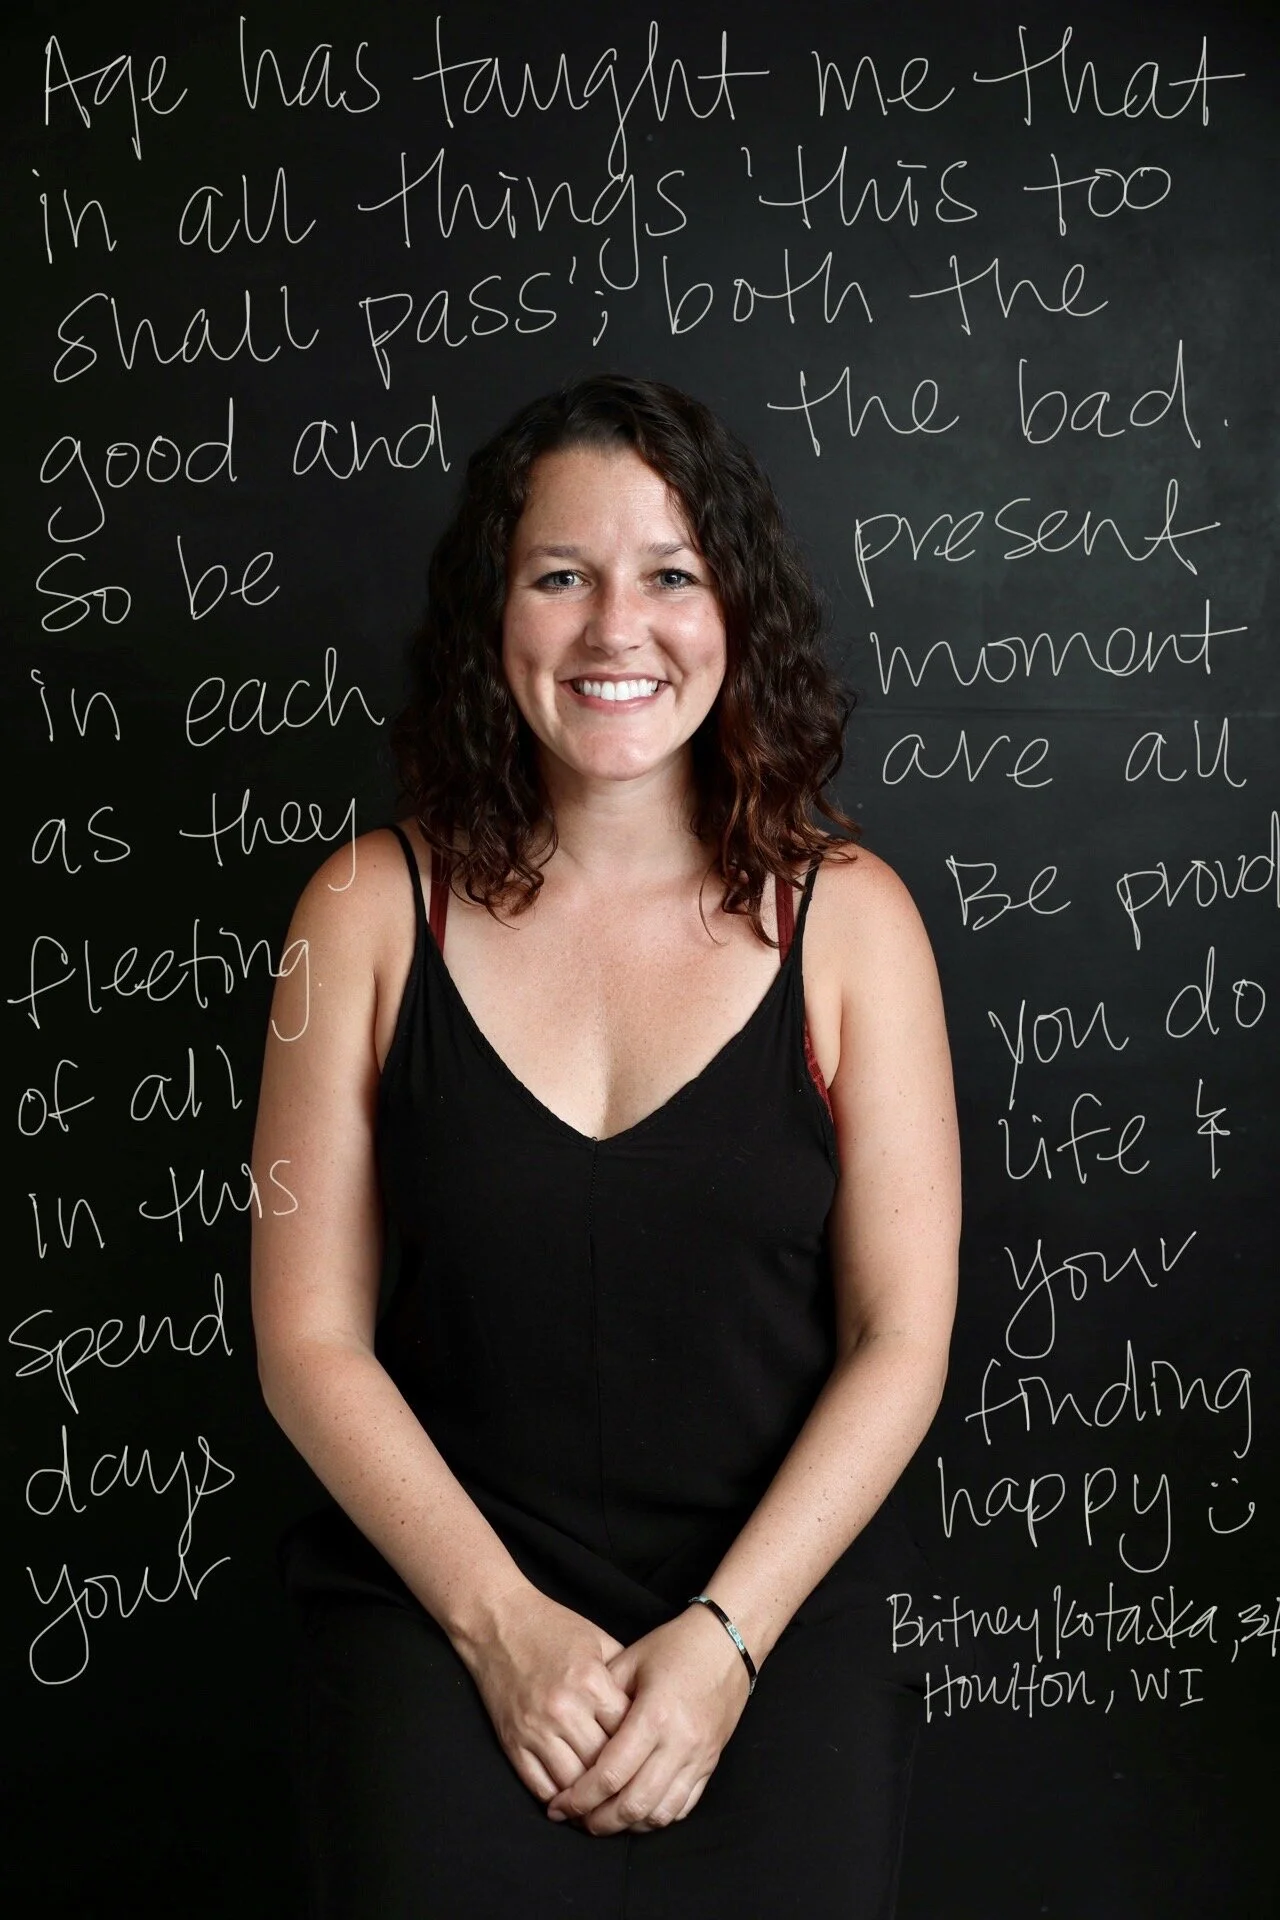 Age has taught me that
in all things 'this too
shall pass'; both the
good and the bad.
So be present
in each moment
as they are all
fleeting. Be proud
of all you do
in this life &
spend your
days finding
your happy :)
Britney Kotaska, 34
Houlton, WI